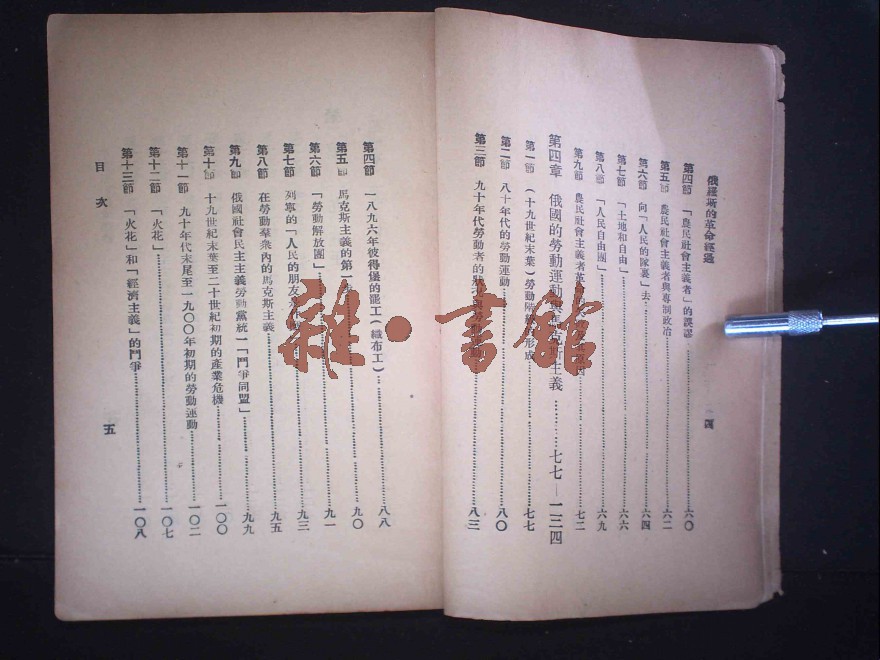 俄羅斯的革命經過
四
第四節 「農民社會主義者」的誤謬……六〇
第五節 農民社會主義者與專制政治……六二
第六節 向「人民的隊裏」去……六四
第七節 「土地和自由」……六六
第八節 「人民自由團」……六九
第九節 農民社會主義者革命的……七二
第四章 俄國的勞動運動與馬克斯主義……七七—一三四
第一節 (十九世紀末葉)勞動階級的形成……七七
第二節 八十年代的勞動運動……八〇
第三節 九十年代勞動者的狀……八三
第四節 一八九六年彼得堡的罷工(織布工)……八八
第五節 馬克斯主義的第一……九〇
第六節 「勞動解放團」……九一
第七節 列寧的「人民的朋友……九三
第八節 在勞動羣衆內的馬克斯主義……九五
第九節 俄國社會民主主義勞動黨統一「鬥爭同盟」……九九
第十節 十九世紀末葉至二十世紀初期的產業危機……一〇〇
第十一節 九十年代末尾至一九〇〇年初期的勞動運動……一〇二
第十二節 「火花」……一〇七
第十三節 「火花」和「經濟主義」的鬥爭……一〇八
目次
五
雜·書館